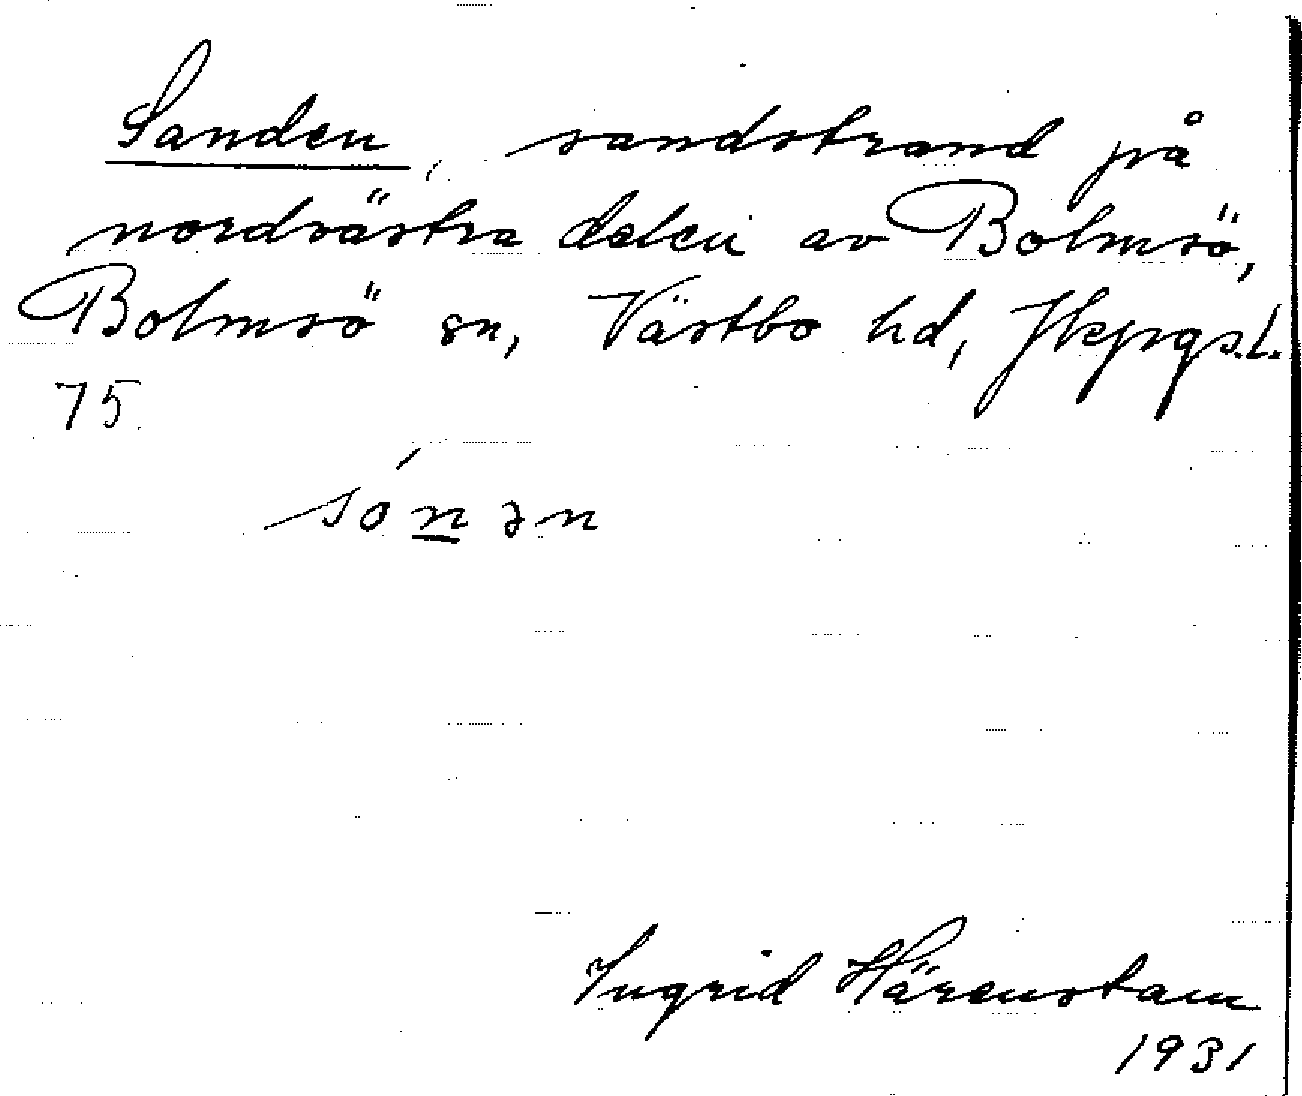 Sanden, sandstrand på
nordvästra delen av Bolmsö,
Bolmsö sn, Västbo hd, Jkpgs.l.
75.
són̲ən
Ingrid Härenstam
1931